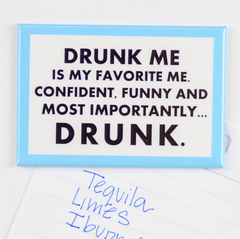 DRUNK ME
IS MY FAVORITE ME.
CONFIDENT, FUNNY AND
MOST IMPORTANTLY...
DRUNK.
Tequila
Limes